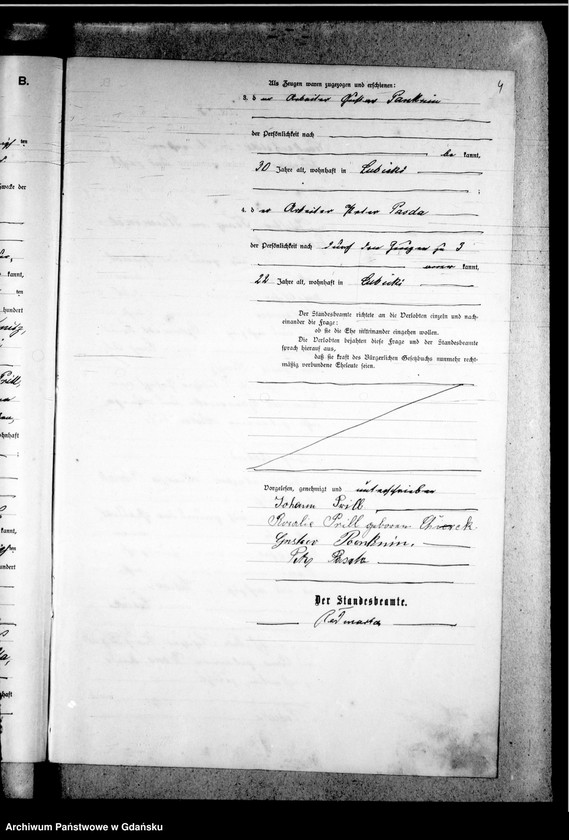 B.
4
Als Zeugen waren zugezogen und erschienen:
3. der Arbeiter Gustav Panknin
der Persönlichkeit nach
be kannt,
30 Jahre alt, wohnhaft in Lubicki
;
4. der Arbeiter Peter Pasda
der Persönlichkeit nach durch den Zeugen zu 3
aner kannt,
22 Jahre alt, wohnhaft in Lubicki
Der Standesbeamte richtete an die Verlobten einzeln und nach-
einander die Frage:
ob sie die Ehe miteinander eingehen wollen.
Die Verlobten bejahten diese Frage und der Standesbeamte
sprach hierauf aus,
daß sie kraft des Bürgerlichen Gesetzbuchs nunmehr recht-
mäßig verbundene Eheleute seien.
Vorgelesen, genehmigt und unterschrieben
Johann Prill
Rosalie Prill geboren
Gustav Panknin.
Peter Pasda
Der Standesbeamte.
Archiwum Państwowe w Gdańsku